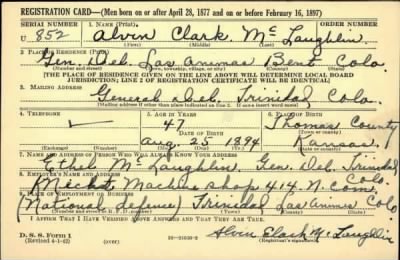 REGISTRATION CARD—(Men born on or after April 28, 1877 and on or before February 16, 1897)
SERIAL NUMBER 1. NAME (Print) ORDER NUMBER
U 852 Alvin Clark McLaughlin
(First) (Middle) (Last)
2. PLACE OF RESIDENCE (Print)
Gen. Del. Las Animas Bent Colo
(Number and street) (Town, township, village, or city) (County) (State)
[THE PLACE OF RESIDENCE GIVEN ON THE LINE ABOVE WILL DETERMINE LOCAL BOARD
JURISDICTION; LINE 2 OF REGISTRATION CERTIFICATE WILL BE IDENTICAL]
3. MAILING ADDRESS
General Del. Trinidad Colo.
(Mailing address if other than place indicated on line 2. If same insert word same)
4. TELEPHONE 5. AGE IN YEARS 6. PLACE OF BIRTH
47 Thomas County
DATE OF BIRTH (Town or county)
Aug. 25 1894 Kansas.
(Exchange) (Number) (Mo.) (Day) (Yr.) (State or country)
7. NAME AND ADDRESS OF PERSON WHO WILL ALWAYS KNOW YOUR ADDRESS
Ethel McLaughlin, Gen. Del. Trinidad Colo.
8. EMPLOYER'S NAME AND ADDRESS
Machine shop 414 N. Com.
9. PLACE OF EMPLOYMENT OR BUSINESS
(National defence) Trinidad Las Animas Colo
(Number and street or R. F. D. number) (Town) (County) (State)
I AFFIRM THAT I HAVE VERIFIED ABOVE ANSWERS AND THAT THEY ARE TRUE.
D. S. S. Form 1
(Revised 4-1-42) (over) Alvin Clark McLaughlin
(Registrant's signature)